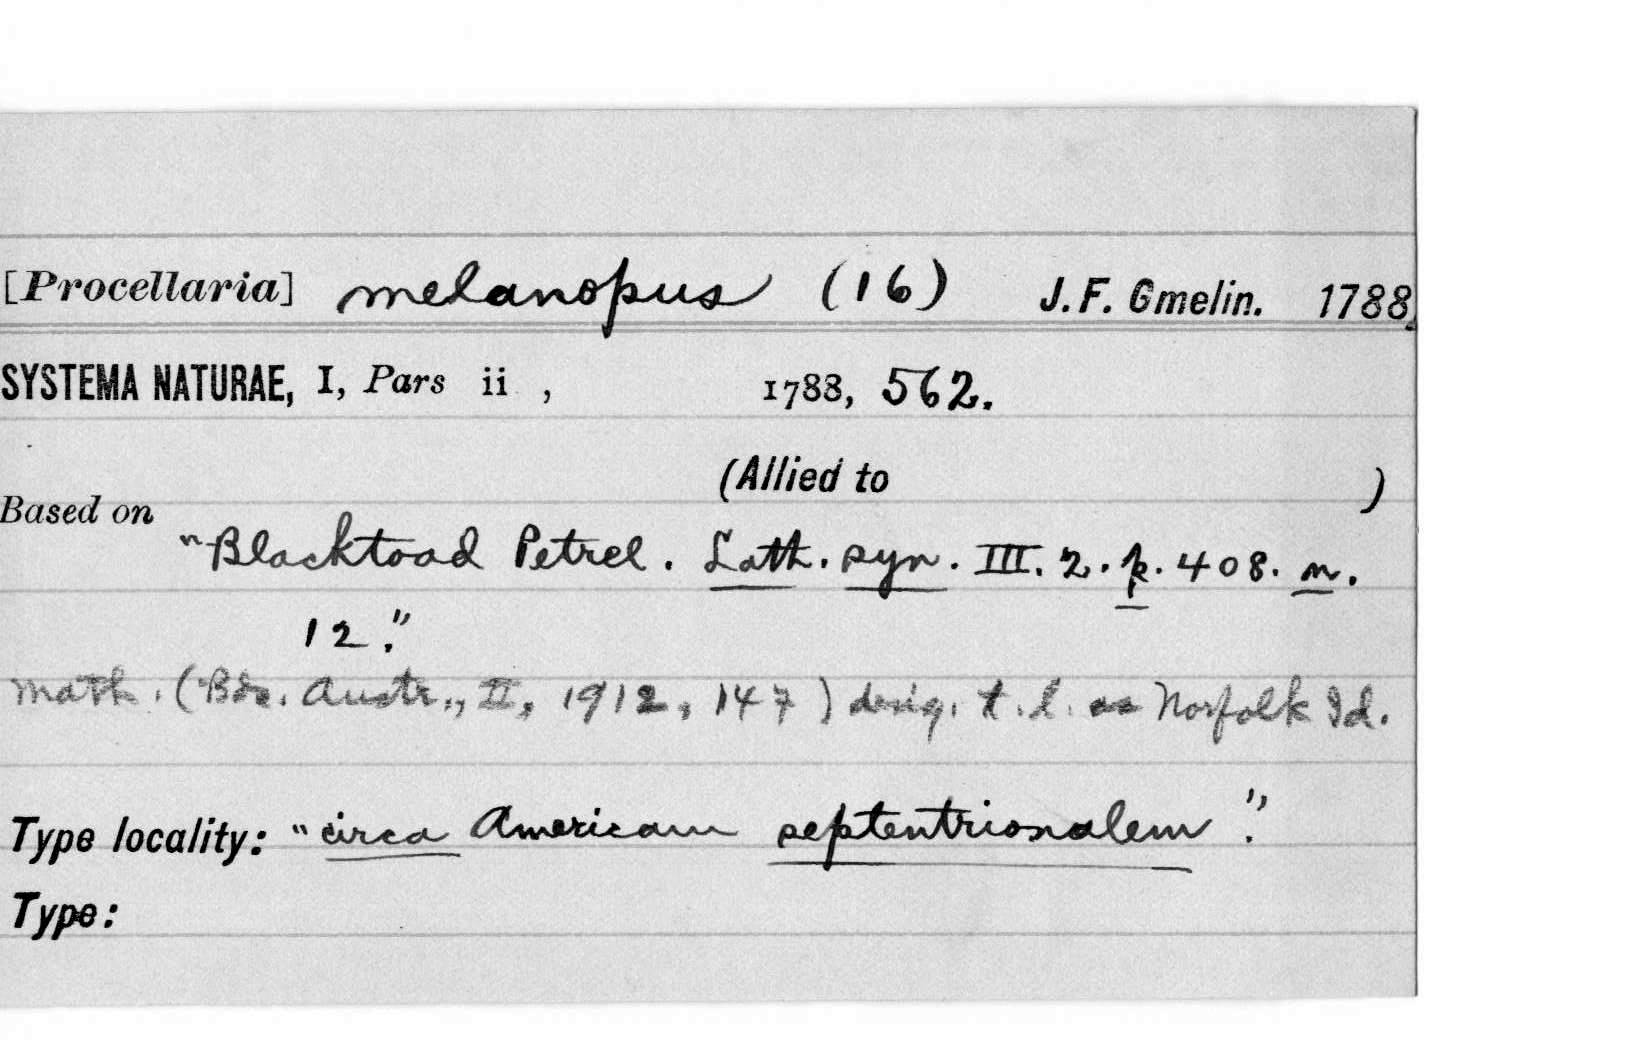 [Procellaria] melanopus (16) J. F. Gmelin. 1788,
SYSTEMA NATURAE, I, Pars ii , 1788, 562.
(Allied to )
Based on
"Blacktoad Petrel. Lath. syn. III. 2. p. 408. n.
12."
Math. (Bds. Austr., II, 1912, 147) desig. t. l. as Norfolk Id.
Type locality: "circa Americam septentrionalem".
Type: